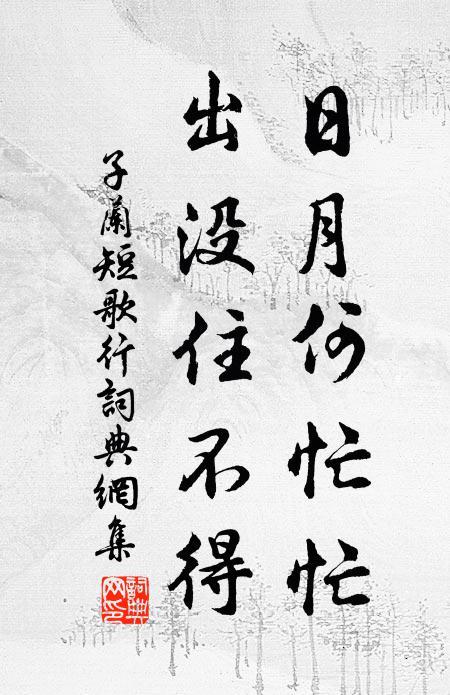 日月何忙忙
出没住不得
子蘭短歌行詞典網集
詞典
网印